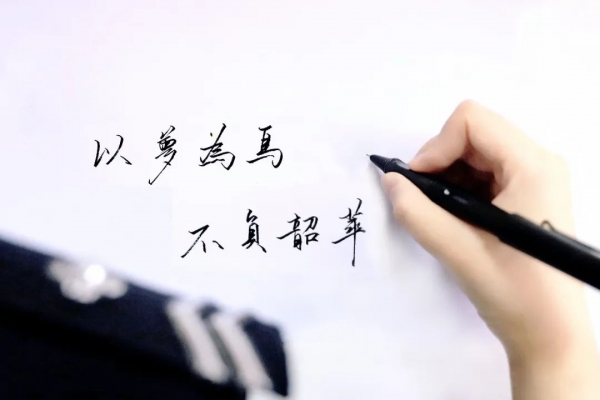 以夢為馬
不負韶華